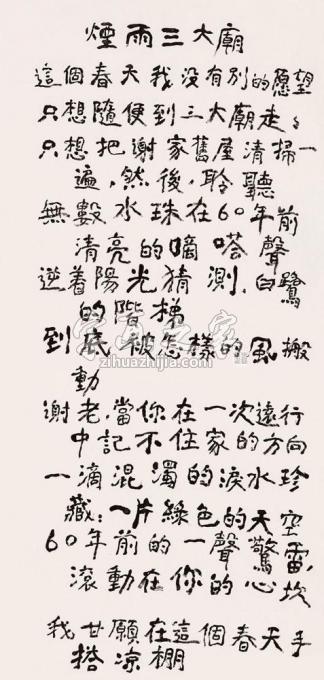 煙雨三大廟
這個春天我没有别的愿望
只想隨便到三大廟走々
只想把謝家舊屋清掃一
遍,然後,聆聽
無數水珠在60年前
清亮的嘀嗒聲
逆着陽光猜測,白鷺
的階梯
到底被怎樣的風搬
動
謝老,當你在一次遠行
中記不住家的方向
一滴混濁的淚水珍
藏:一片綠色的天空
60年前的一聲驚雷,
滾動在你的心坎
我甘願在這個春天手
搭凉棚
字画之家
zihuazhijia.com